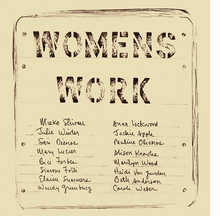 WOMENS
WORK
Mieko Shiomi
Julie Winter
Mary Lucier
Bici Forbes
Simone Forti
Wendy Greenberg
Anna Lockwood
Jackie Apple
Pauline Oliveros
Alison Knowles
Marilyn Wood
Heidi Von
Beth Anderson
Carole Weber